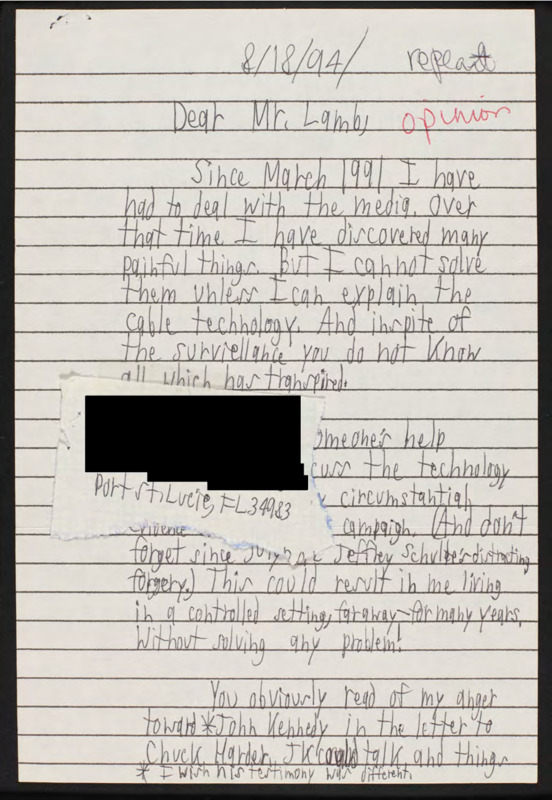 8/18/94/ repeat
Dear Mr. Lamb, opinion
Since March 1991 I have
had to deal with the media. Over
that time I have discovered many
painful things. But I cannot solve
them unless I can explain the
cable technology. And inspite of
the survirellance you do not know
all which has transpired.
omeone's help
cuss the technology
Port St. Lucie, FL 34983
circumstantial
evidence campaign. (And don't
forget since Jeffrey Schulbe's distracting
forgery.) This could result in me living
in a controlled setting, far away-for many years.
Without solving any problem!
You obviously read of my anger
toward *John Kennedy in the letter to
Chuck Harder. JK could talk, and things
* I wish his testimony was different.